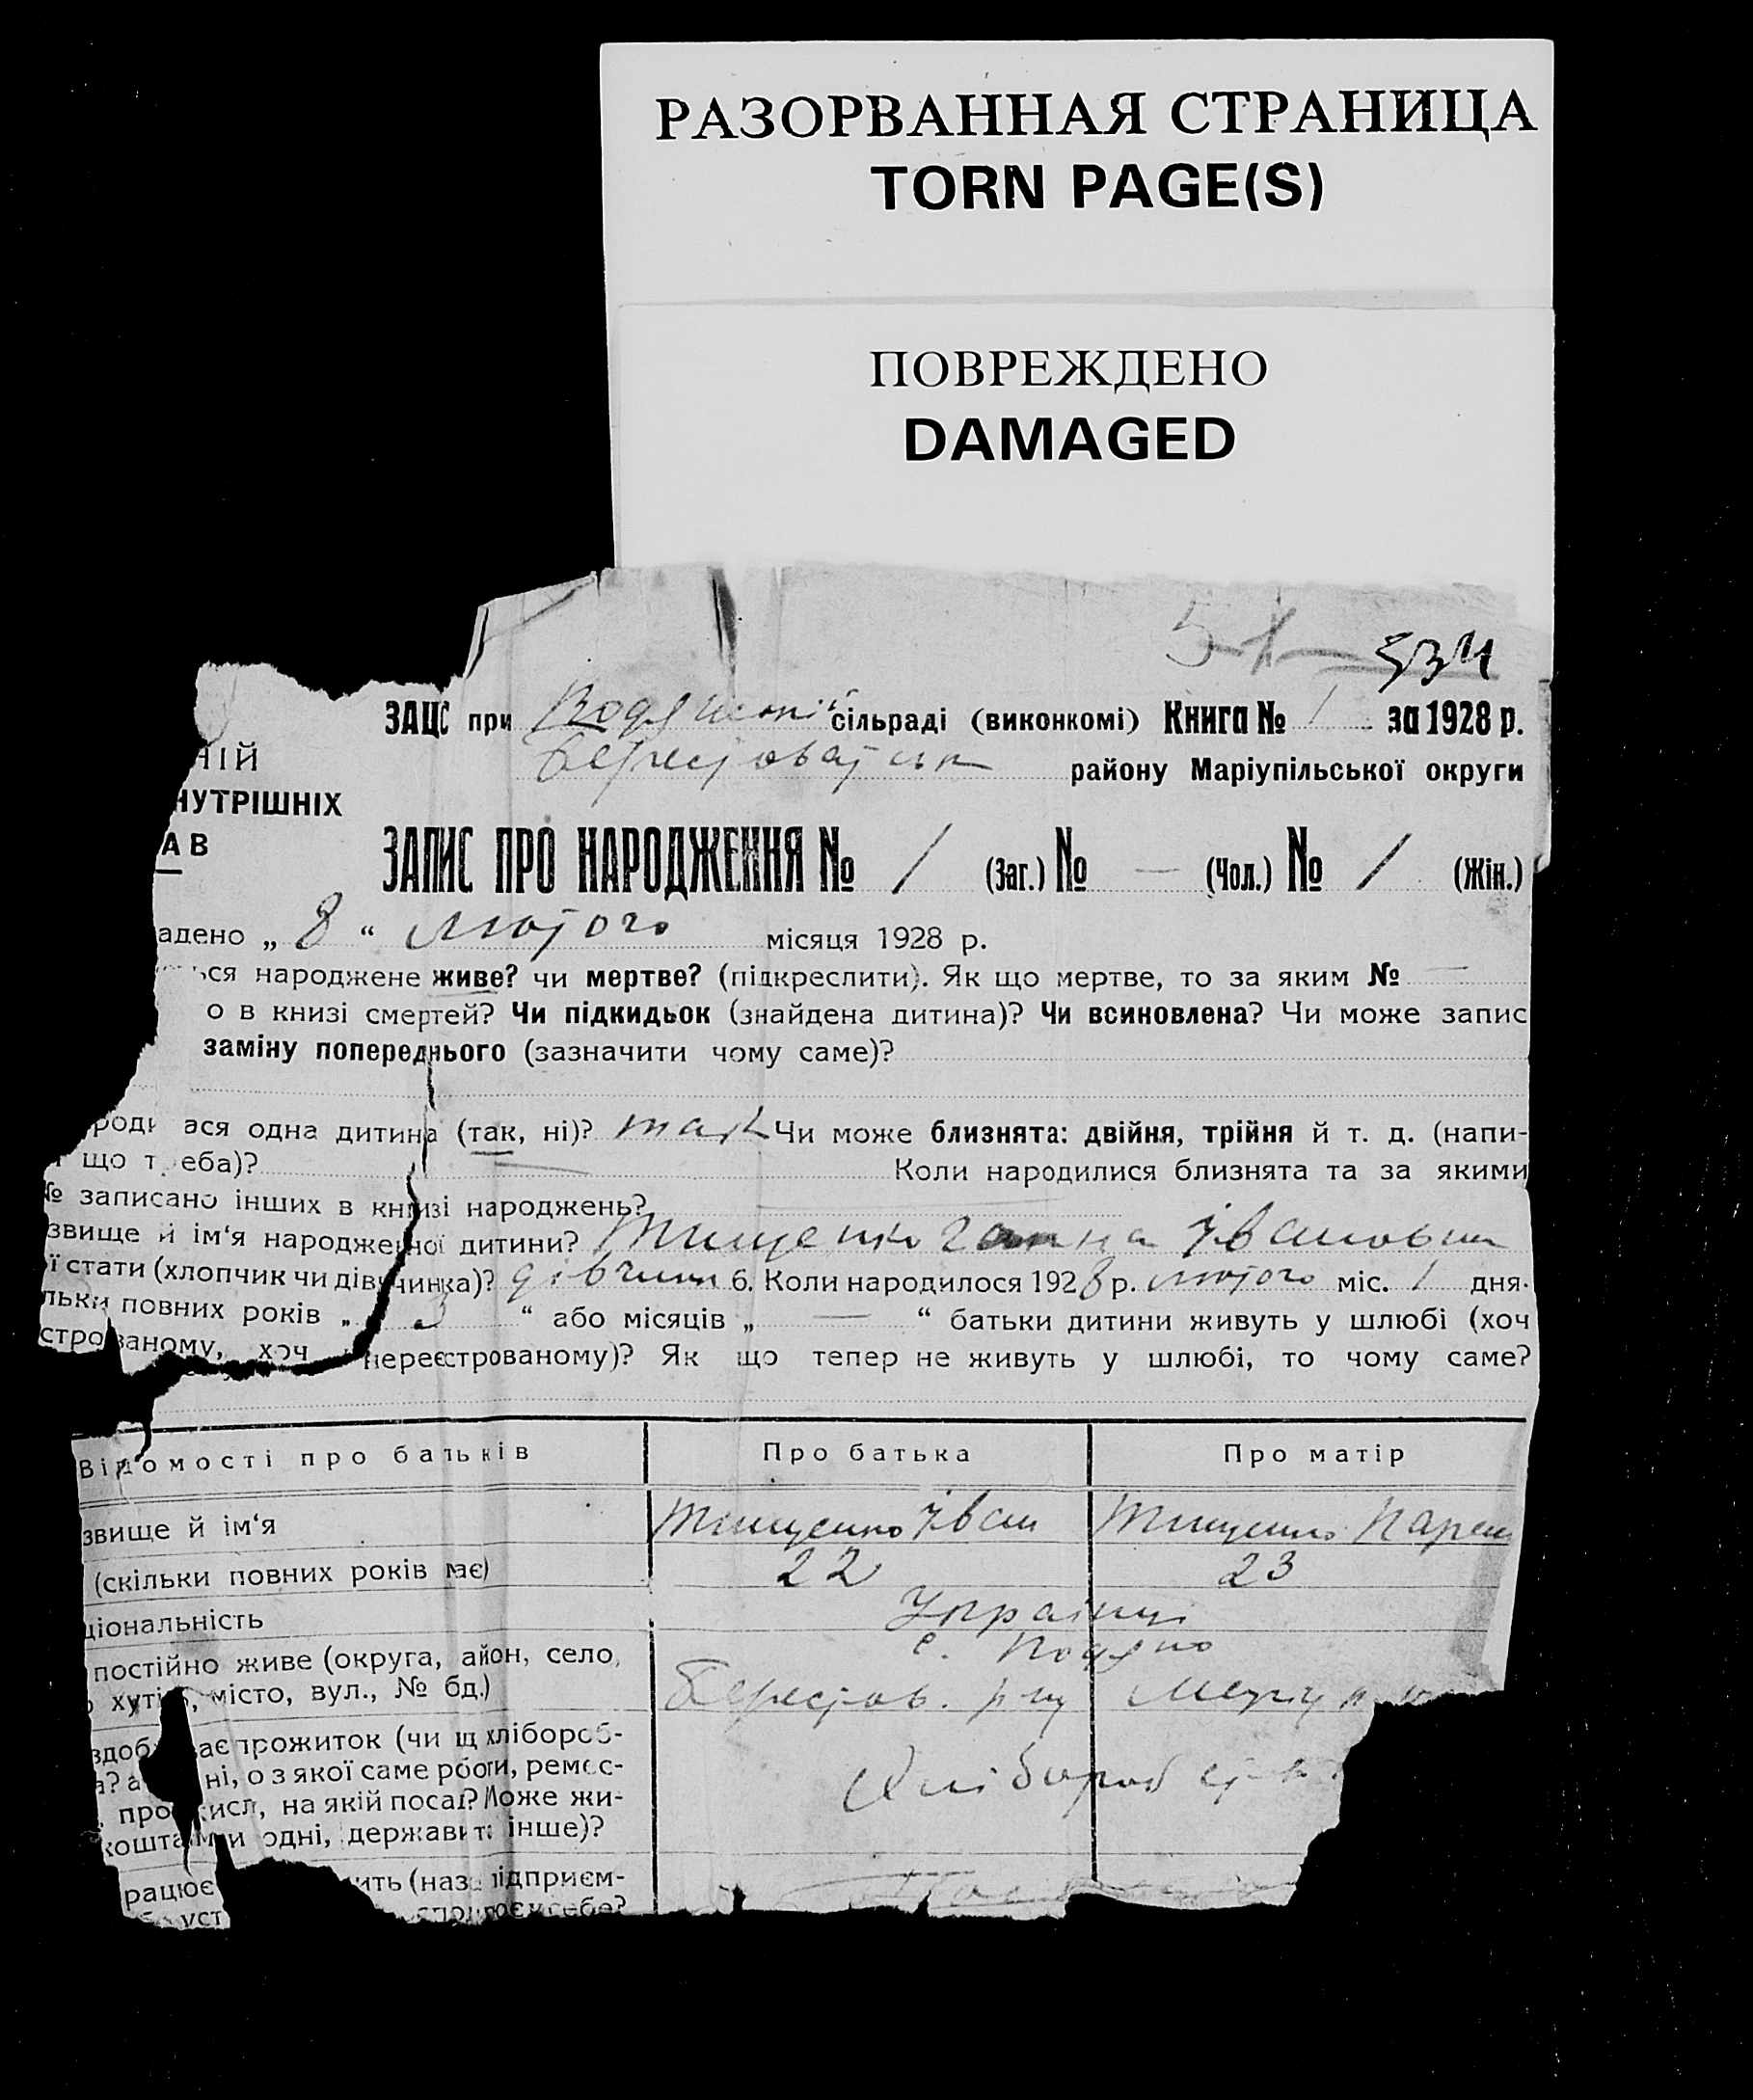 РАЗОРВАННАЯ СТРАНИЦА
TORN PAGE(S)
ПОВРЕЖДЕНО
DAMAGED
534
ЗАЦС при сільраді (виконкомі) Книга № 1 за 1928 р.
НІЙ
району Маріупільської округи
НУТРІШНІХ
АВ
ЗАПИС ПРО НАРОДЖЕННЯ № 1 (Заг.) № — (Чол.) № 1 (Жін.)
адено „ 8 “ лютого місяця 1928 р.
ься народжене живе? чи мертве? (підкреслити). Як що мертве, то за яким № —
о в книзі смертей? Чи підкидьок (знайдена дитина)? Чи всиновлена? Чи може запис
заміну попереднього (зазначити чому саме)?
ася одна дитина (так, ні)? так Чи може близнята: двійня, трійня й т. д. (напи-
що треба)? — Коли народилися близнята та за якими
№ записано інших в книзі народжень? —
звище й ім‘я народженої дитини? Тищенко Ганна Івановна
ї стати (хлопчик чи дівчинка)? дівчина 6. Коли народилося 1928 р. лютого міс. 1 дня.
льки повних років „ 3 “ або місяців „ — “ батьки дитини живуть у шлюбі (хоч
строваному, хоч нереєстрованому)? Як що тепер не живуть у шлюбі, то чому саме?
Відомості про батьків Про батька Про матір
звище й ім‘я Тищенко Іван Тищенко
(скільки повних років має) 22 23
ціональність Українці
постійно живе (округа, район, село, с.
хутір, місто, вул., № буд.) Берестов. р-ну
прожиток (чи хлібороб-
ні, о з якої саме роботи, ремес-
на якій посаді? Може жи-
одні, держави інше)? Хлібороб
рацює підприєм-
уст себе?